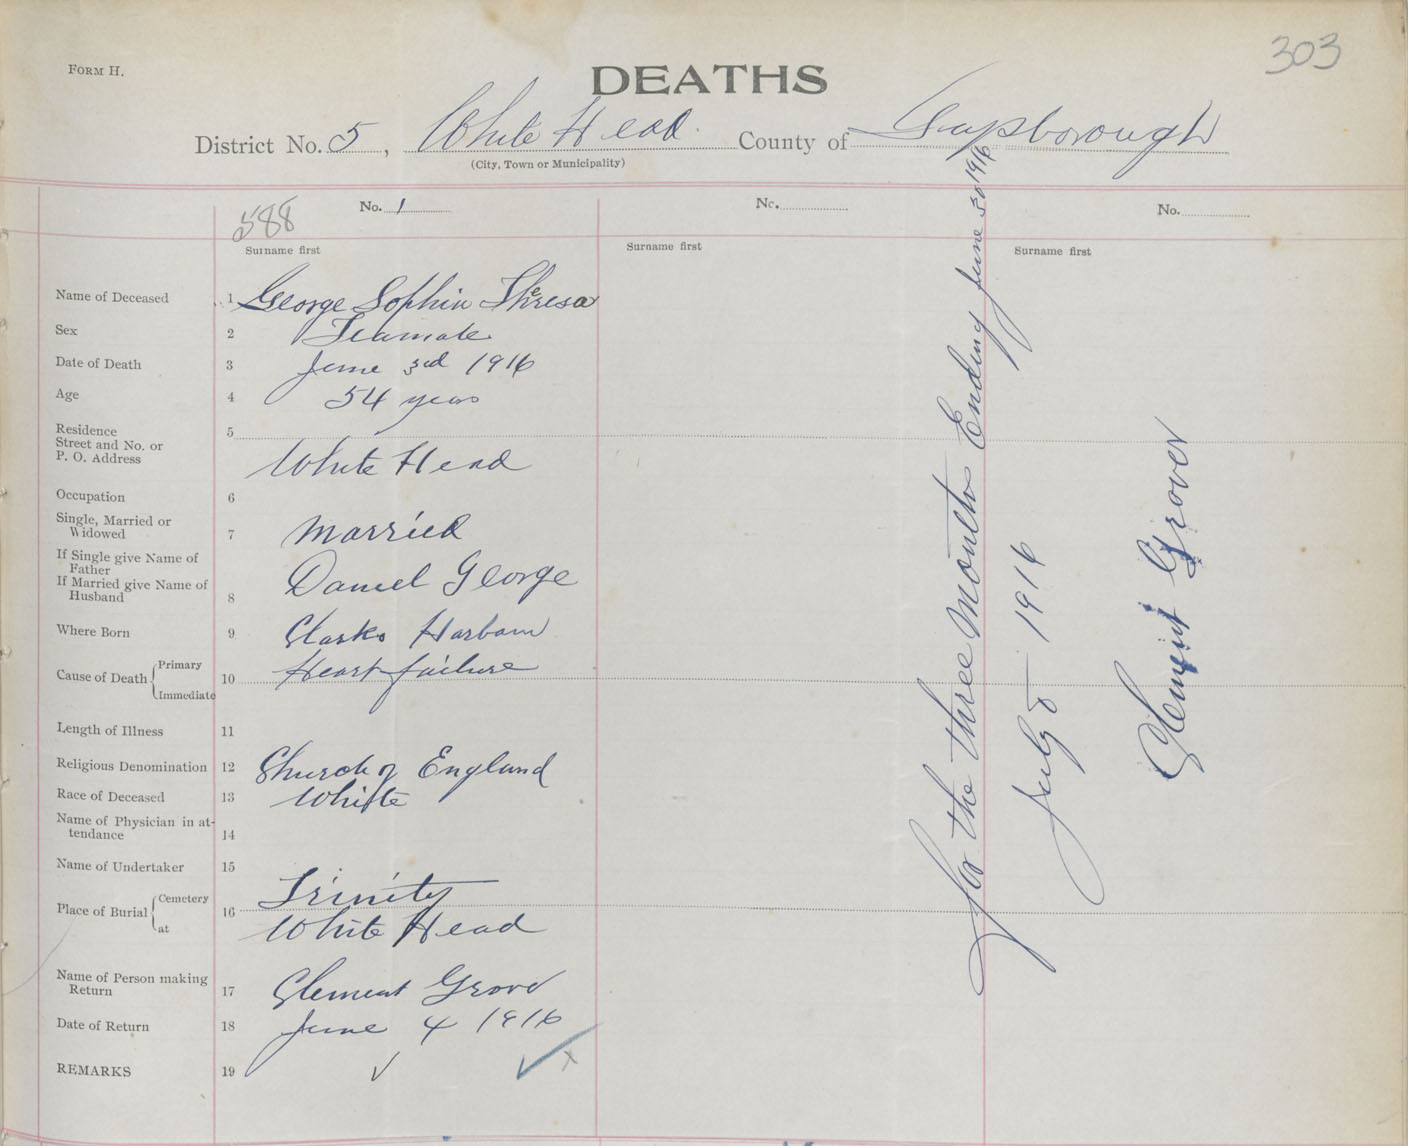 303
FORM H.
DEATHS
District No. 5, White Head County of Guysborough
(City, Town or Municipality)
588
No. 1 No. No.
Surname first Surname first Surname first
Name of Deceased 1 George Sophia Theresa
Sex 2 Feamale
Date of Death 3 June 3rd 1916
Age 4 54 years
Residence 5
Street and No. or
P. O. Address White Head
Occupation 6
Single, Married or
Widowed 7 Married
If Single give Name of
Father
If Married give Name of
Husband 8 Daniel George
Where Born 9 Clarks Harbour
Cause of Death Primary Heart failure
10
Immediate
Length of Illness 11
Religious Denomination 12 Church of England
Race of Deceased 13 White
Name of Physician in at-
tendance 14
Name of Undertaker 15
Place of Burial Cemetery Trinity
16
at White Head
Name of Person making
Return 17 Clement Grover
Date of Return 18 June 4 1916
REMARKS 19
for the three Months Ending June 30 1916
July 5 1916
Clement Grover